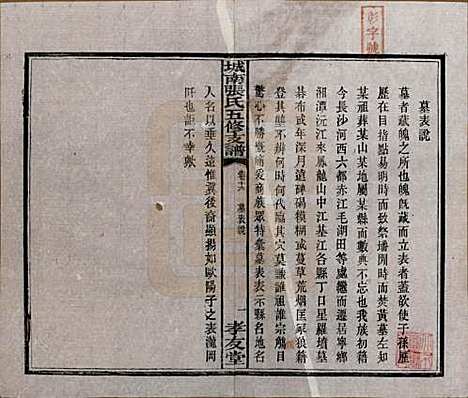 彭字號
墓表說
墓者藏魄之所也魄既藏而立表者蓋欲使子孫歷
歷在目指點易明時而致祭墦閒時而焚黃墓左知
某祖葬某山某地屬某縣而數典不忘也我族初籍
今長沙河西六都赤江毛湖田等處繼而遷居寧鄉
湘潭沅江來鳳龍山中江基江各縣丁口星羅墳墓
碁布或年深月遠碑碣模糊或蔓草荒烟匡冢狼籍
登其隴者不辨何時何代臨其穴莫識誰祖誰宗觸目
驚心不勝慨矣商族眾特彙墓表表示縣名地名
人名以垂久遠惟冀後裔顯揚如歐陽子之表瀧岡
阡也詎不幸歟
城南張氏五修支譜
卷十六
墓表說
一
孝友堂